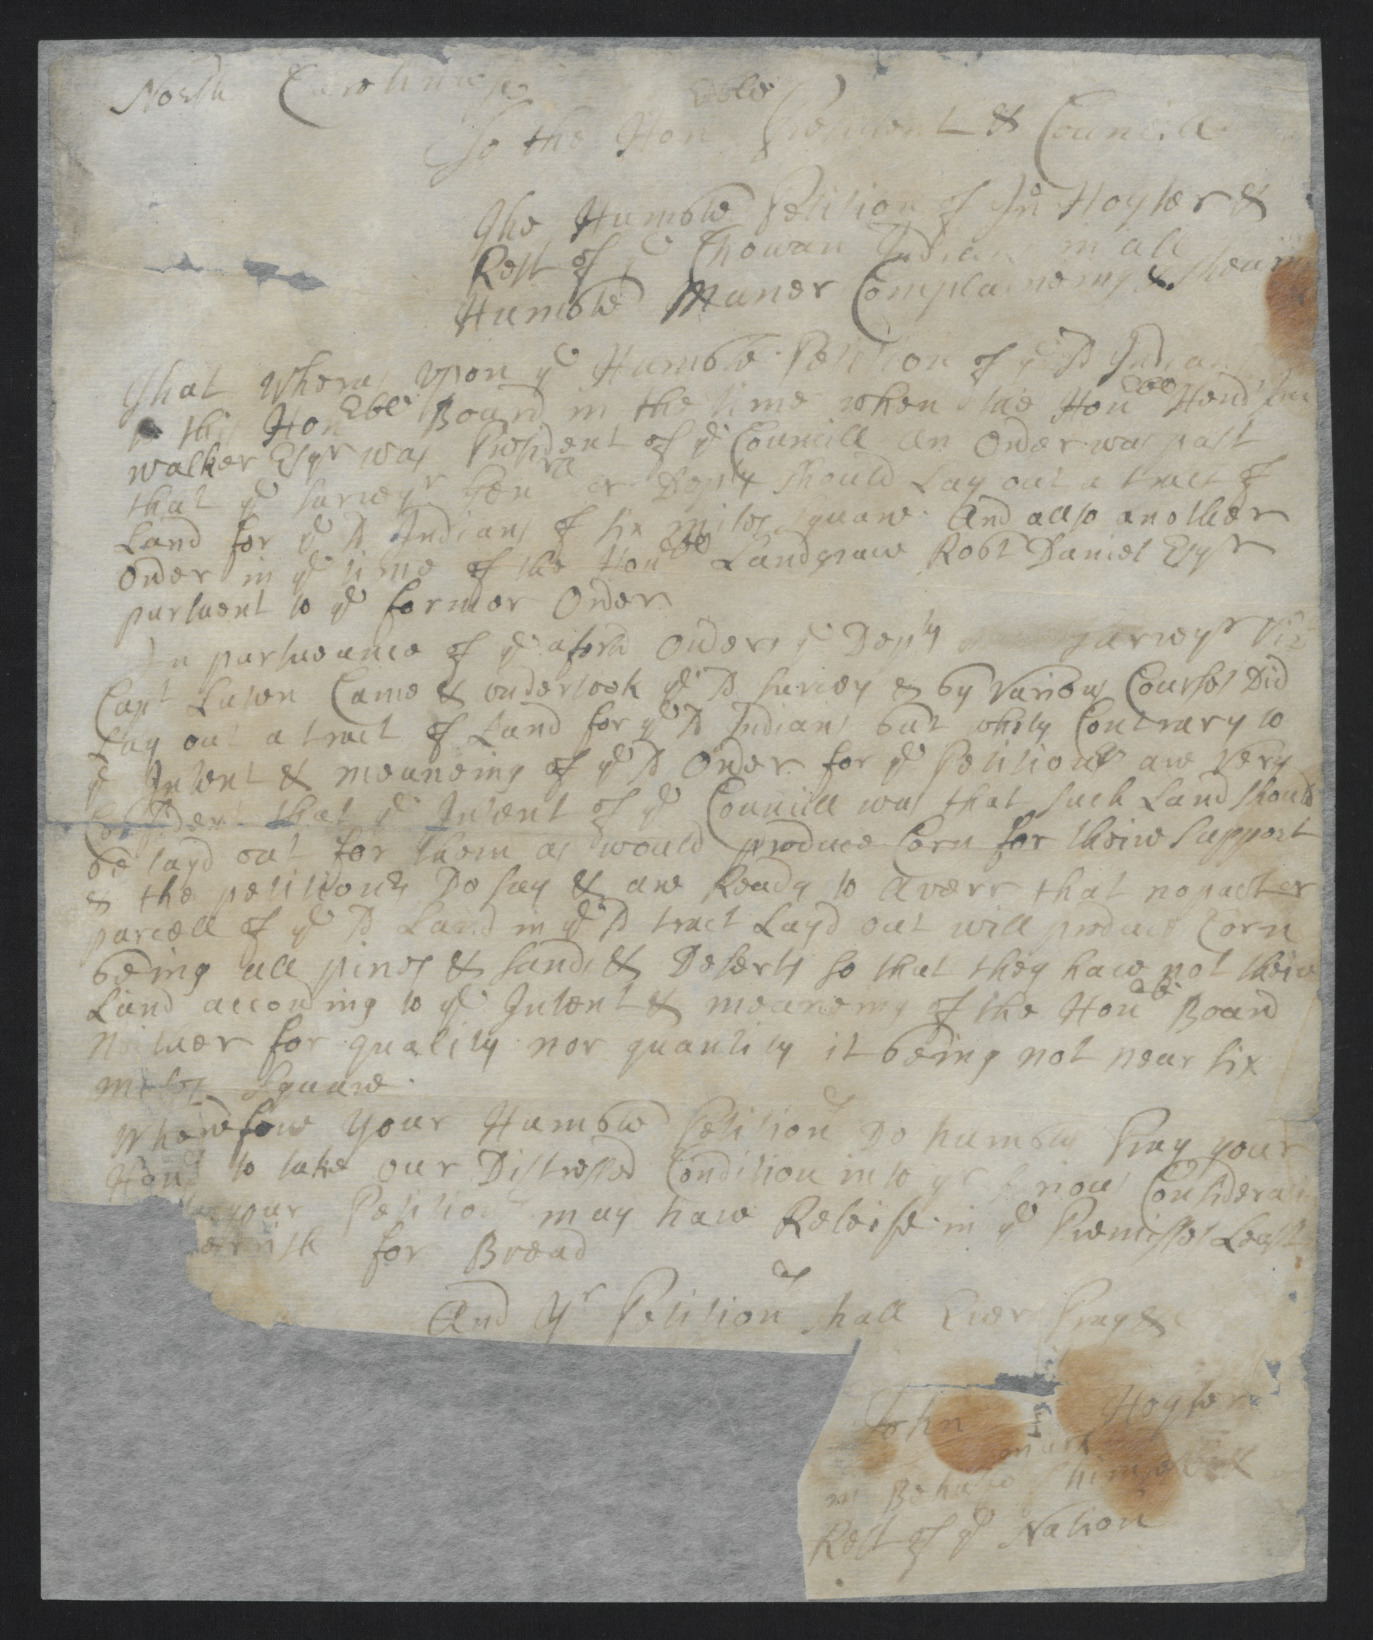 North Carolina
To the Hon^(ble) President & Councill
The Humble Petition of Jn^o Hoyter &
Rest of y^e Chowan Indians in all
Humble Maner Complaineing & Shewing
That Wheras upon y^e Humble Petition of y^e sd Indians
to this Hon^(ble) Board in the time when the Hon^(ble) Henderson
walker Esq^r was President of y^e Councill an Order was past
that y^e Survey^r Gen^(ll) or Dep^(ty) should Lay out a tract of
Land for y^e sd Indians of six miles square And allso another
Order in y^e time of the Hon^(ble) Landgrave Rob^t Daniel Esq^r
pursuent to y^e former Order
In pursueance of y^e aforsd Orders y^e Dep^(ty) Survey^r Viz
Capt Luten Came & undertook y^e sd Survey & by Various Courses Did
Lay out a tract of Land for y^e sd Indians but wholy Contrary to
y^e Intent & meaneing of y^e sd Order for y^e Petition^(rs) are very
Confident that y^e Intent of y^e Councill was that such Land should
be layd out for them as would produce Corn for theire support
& the petition^(rs) Do say & are Ready to averr that no part or
parcell of y^e sd Land in y^e sd tract Layd out will produce Corn
being all pines & sands & Deserts so that they have not theire
Land according to y^e Intent & meaneing of the Hon^(ble) Board
Nither for quality nor quantity it being not near six
miles square.
Wherefore your Humble Petition^(rs) Do humbly Pray your
Hon^(rs) to take our Distressed Condition into y^r Consideration
your Petition^(rs) may have Releife in y^e Premisses Least
perrish for Bread
And y^r Petition^(rs) shall Ever Pray &c
John Hoyter
mark
in Behalfe himselfe &
Rest of y^e Nation